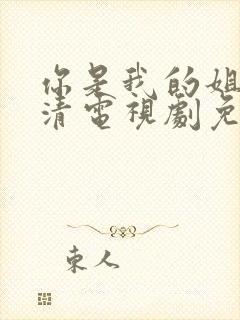 你是我的姐
清電視劇免
東人